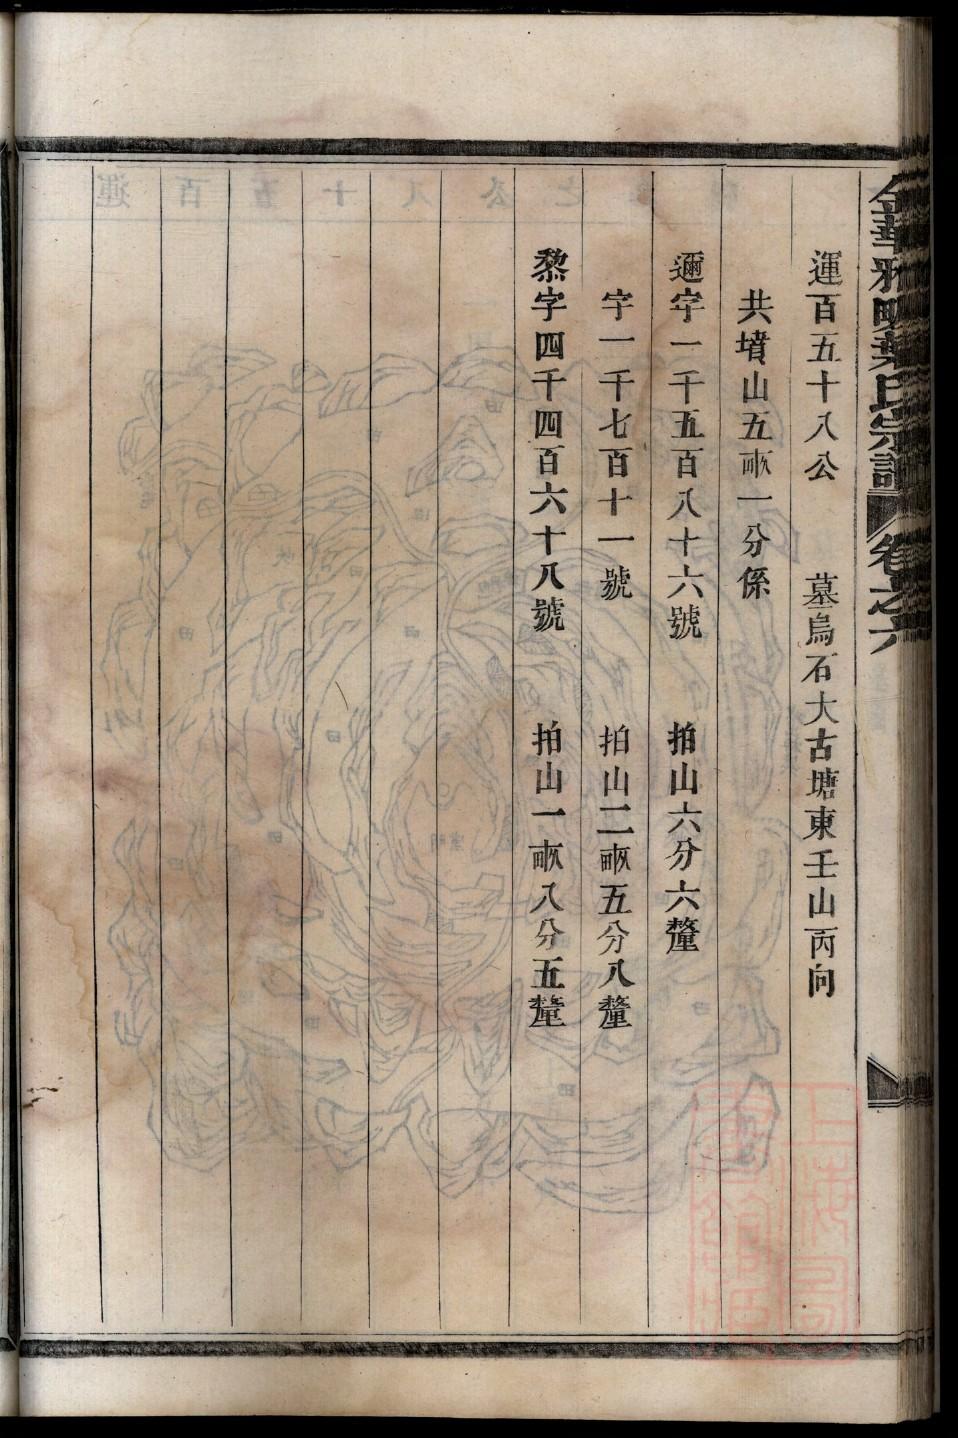 金華雅畈葉氏宗譜 卷之六
運百五十八公 墓烏石大古塘東壬山丙向
共墳山五畝一分係
邇字一千五百八十六號 拍山六分六釐
字一千七百十一號 拍山二畝五分八釐
黎字四千四百六十八號 拍山一畝八分五釐